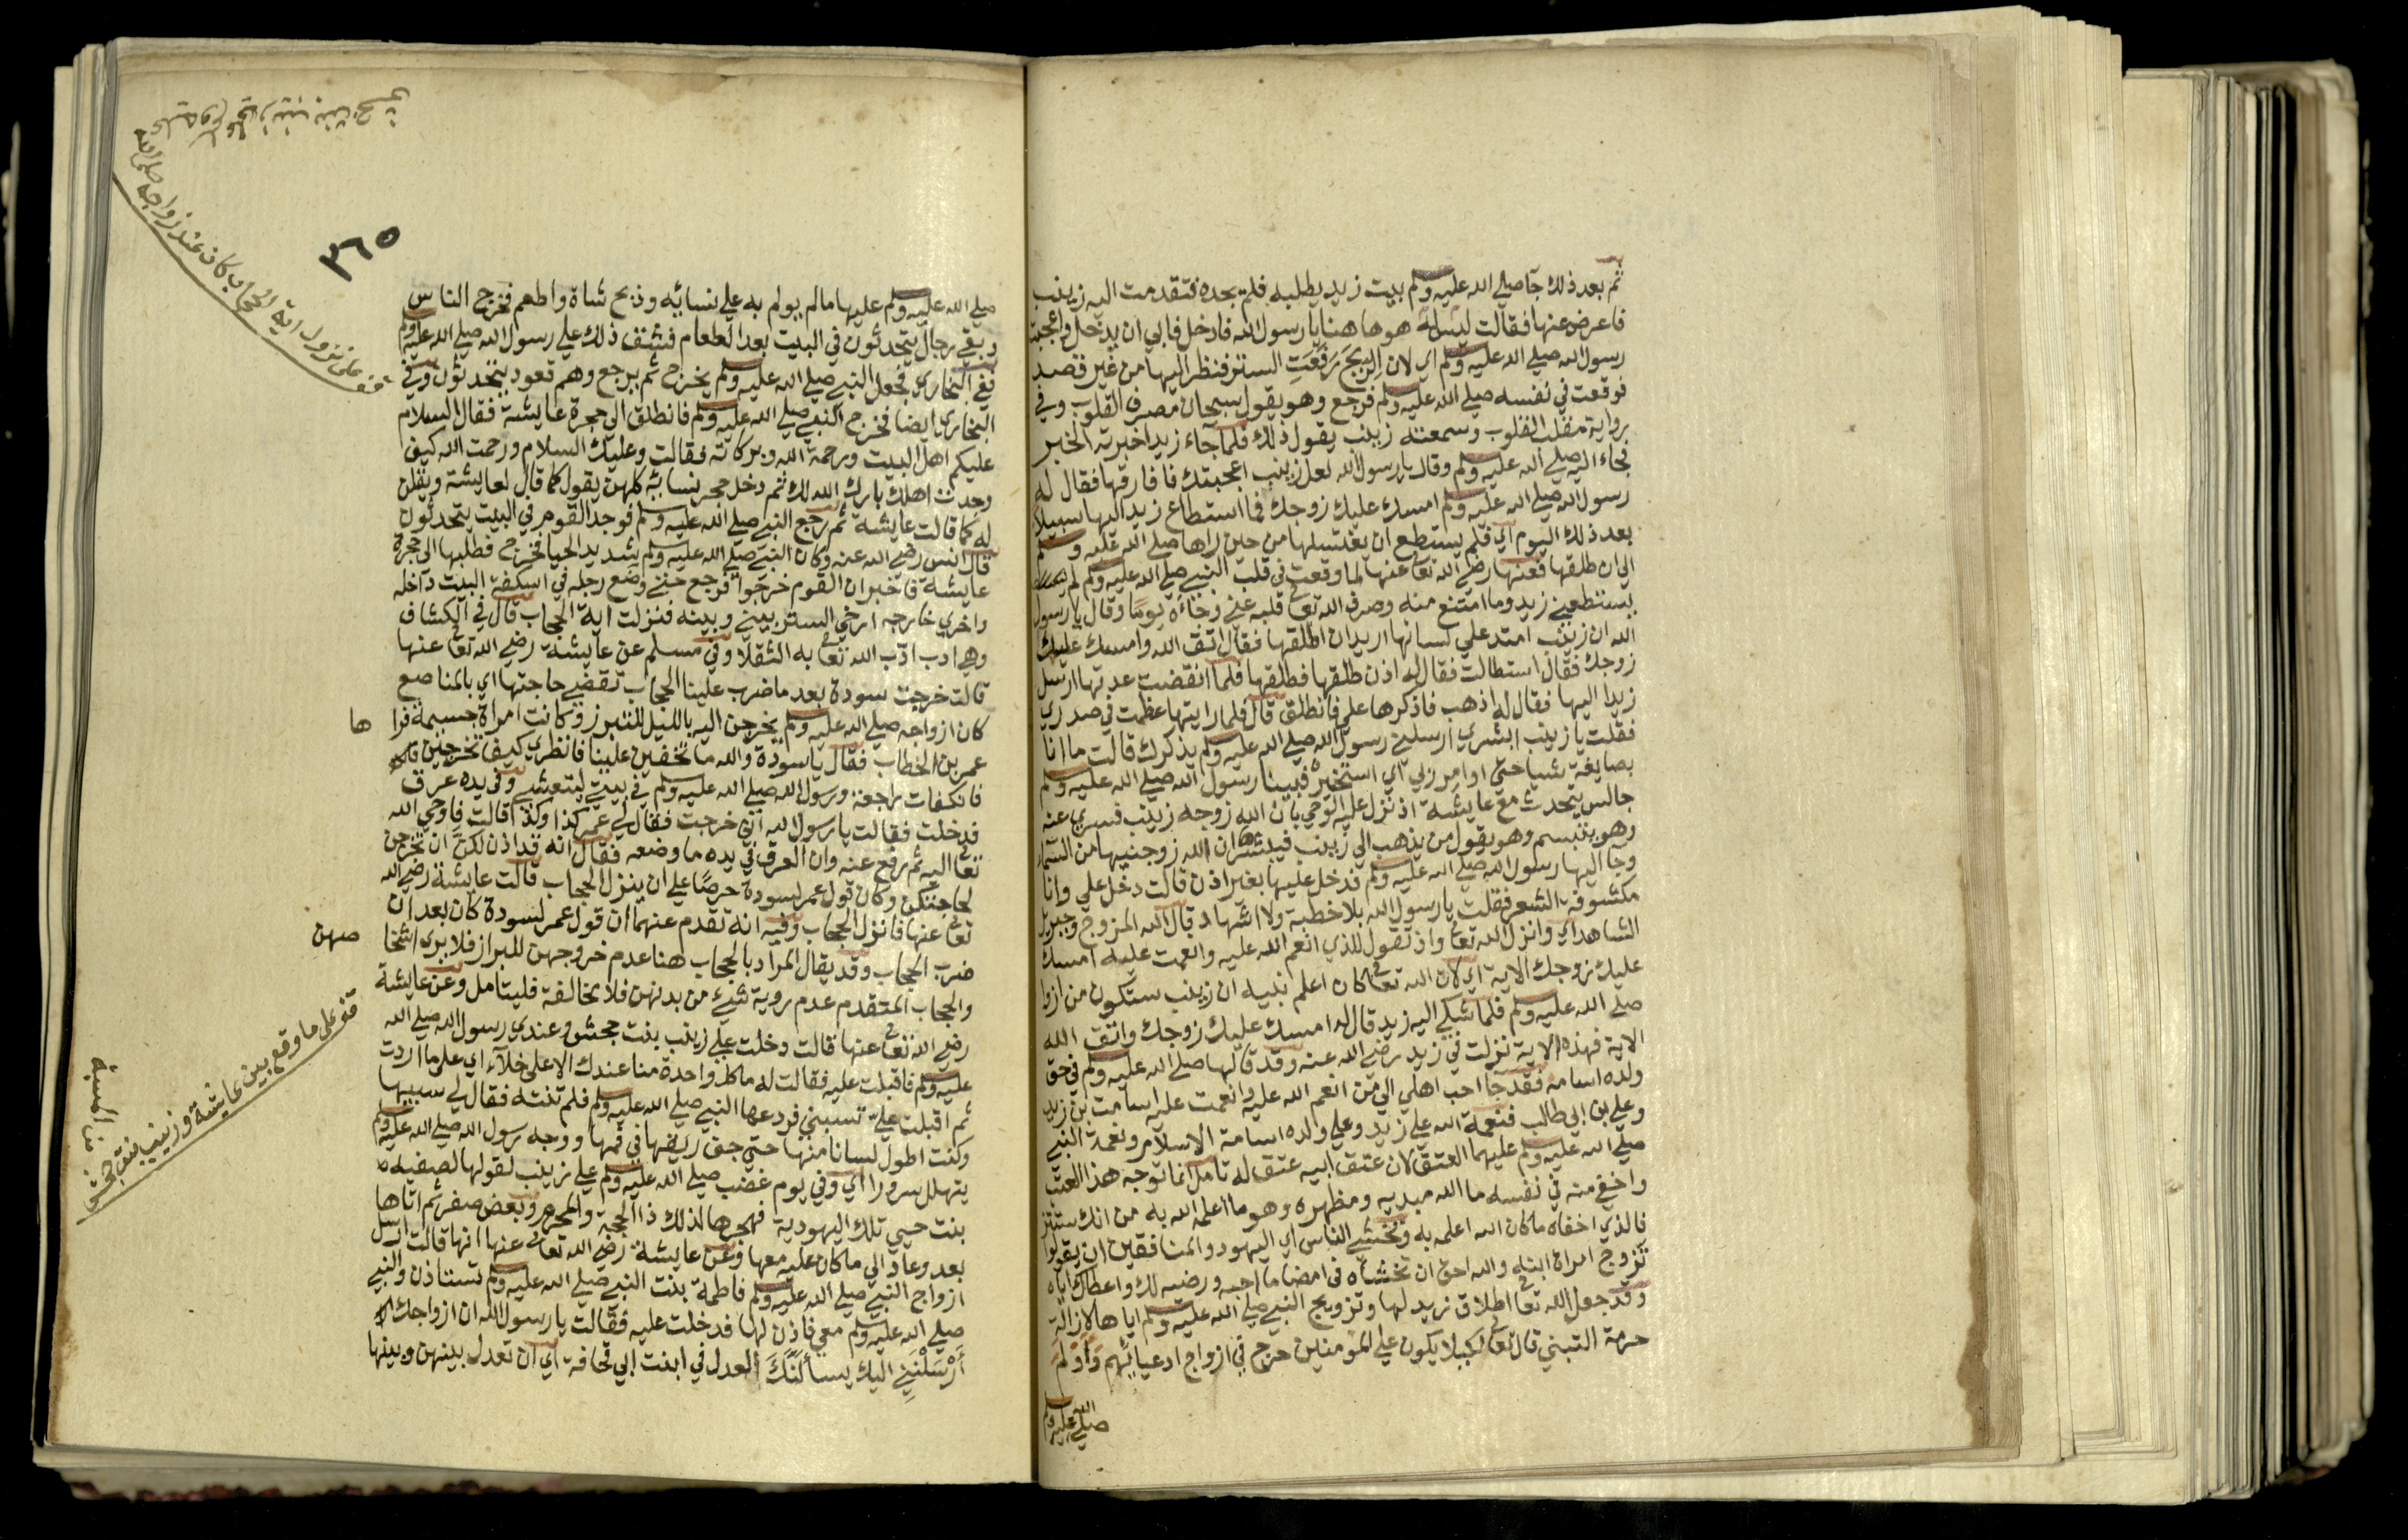 ثم بعد ذلك جا صلي الله عليه وسلم بيت زيد يطلبه فلم يجده فتقدمت اليه زينب
فاعرض عنها فقالت ليس له هو هاهنا يا رسول الله فادخل فابي ان يدخل واعجبت
رسول الله صلي الله عليه وسلم اي لان الريح رفعت الستر فنظر اليها من غير قصد
فوقعت في نفسه صلي الله عليه وسلم فرجع وهو يقول سبحان مصرف القلوب وفي
رواية مقلب القلوب وسمعته زينب يقول ذلك فلما جاء زيد اخبرته الخبر
فجاء اليه صلي الله عليه وسلم وقال يا رسول الله لعل زينب اعجبتك فافارقها فقال له
رسول الله صلي الله عليه وسلم امسك عليك زوجك فما استطاع زيد اليها سبيلا
بعد ذلك اليوم اي فلم يستطع ان يغشها من حين راها صلي الله عليه وسلم
الي ان طلقها فعنها رضي الله تعالي عنها لما وقعت في قلب النبي صلي الله عليه وسلم لم
يستطعني زيد وما امتنع منه وصرف الله تعالي قلبه عني وجاءه يوما وقال يا رسول
الله ان زينب امتد علي لسانها اريد ان اطلقها فقال اتق الله وامسك عليك
زوجك فقال استطالت فقال له اذن طلقها فطلقها فلما انقضت عدتها ارسل
زيدا اليها فقال له اذهب فاذكرها علي فانطلق قال فلما رايتها عظمت في صدري
فقلت يا زينب ابشري ارسلني رسول الله صلي الله عليه وسلم يذكرك قالت ما انا
بصانعة شيا حتي اوامر ربي اي استخيره فبينا رسول الله صلي الله عليه وسلم
جالس يتحدث مع عايشة اذ نزل عليه الوحي بان الله زوجه زينب فسري عنه
وهو يتبسم وهو يقول من يذهب الي زينب فيبشرها ان الله زوجنيها من السماء
وجا اليها رسول الله صلي الله عليه وسلم فدخل عليها بغير اذن قالت دخل علي وانا
مكشوفة الشعر فقلت يا رسول الله بلا خطبة ولا اشهاد قال الله المزوج وجبريل
الشاهد اي وانزل الله تعالي واذ تقول للذي انعم الله عليه وانعمت عليه امسك
عليك زوجك الاية اي لان الله تعالي كان اعلم نبيه ان زينب ستكون من ازوا
صلي الله عليه وسلم فلما شكي اليه زيد قال له امسك عليك زوجك واتق الله
الاية فهذه الاية نزلت في زيد رضي الله عنه وقد قالها صلي الله عليه وسلم في حق
ولده اسامة فقد جا احب اهلي الي من انعم الله عليه وانعمت عليه اسامة بن زيد
وعلي بن ابي طالب فنعمة الله علي زيد وعلي والده اسامة الاسلام ونعمة النبي
صلي الله عليه وسلم عليهما العتق لان عتق ابيه عتق له تامل انما توجه هذا العتب
واخفي منه في نفسه ما الله مبديه ومظهره وهو ما اعلمه الله به من انك ستتز
فالذي اخفاه ما كان الله اعلمه به وتخشي الناس اي اليهود والمنافقين ان يقولوا
تزوج امراة ابنه والله احق ان تخشاه في امضا ما احبه ورضيه لك واعطاك اياه
وقد جعل الله تعالي اطلاق زيد لها وتزويج النبي صلي الله عليه وسلم اياها لازالة
حرمة التبني قال تعالي لكيلا يكون علي المؤمنين حرج في ازواج ادعيائهم واولم
صلي الله عليه وسلم
٣٦٥
قف على نزول اية الحجاب كان عند زواجه صلى الله
عليه وسلم على زينب بنت جحش
صلي الله عليه وسلم عليها ما لم يولم به علي نسائه وذبح شاة واطعم فخرج الناس
وبقي رجال يتحدثون في البيت بعد الطعام فشق ذلك علي رسول الله صلي الله عليه وسلم
ففي البخاري فجعل النبي صلي الله عليه وسلم يخرج ثم يرجع وهم قعود يتحدثون وفي
البخاري ايضا فخرج النبي صلي الله عليه وسلم فانطلق الي حجرة عايشة فقال السلام
عليكم اهل البيت ورحمة الله وبركاته فقالت وعليك السلام ورحمت الله كيف
وجدت اهلك بارك الله لك ثم دخل حجر نسائه كلهن يقول كما قال لعايشة ويقلن
له كما قالت عايشة ثم رجع النبي صلي الله عليه وسلم فوجد القوم في البيت يتحدثون
قال انس رضي الله عنه وكان النبي صلي الله عليه وسلم شديد الحيا فخرج فطلبها الي حجرة
عايشة فاخبر ان القوم خرجوا فرجع حتي وضع رجله في اسكفة البيت داخله
واخري خارجه ارخي الستر بيني وبينه فنزلت اية الحجاب قال في الكشاف
وهي ادب ادب الله تعالي به الثقلا وفي مسلم عن عايشة رضي الله تعالي عنها
قالت خرجت سودة بعد ما ضرب علينا الحجاب تقضي حاجتها اي بالمناصع
كان ازواجه صلي الله عليه وسلم يخرجن اليه بالليل للتبرز وكانت امراة جسيمة فرا ها
عمر بن الخطاب فقال يا سودة والله ما تخفين علينا فانظري كيف تخرجين
فانكفات راجعة ورسول الله صلي الله عليه وسلم في بيتي ليتعشي وفي يده عرق
فدخلت فقالت يا رسول الله اني خرجت فقال لي عمر كذا وكذا قالت فاوحي الله
تعالي اليه ثم رفع عنه وان العرق في يده ما وضعه فقال انه قد اذن لكن ان تخرجن
لحاجتكن وكان قول عمر لسودة حرصا علي ان ينزل الحجاب قالت عايشة رضي الله
تعالي عنها فانزل الحجاب وفيه انه تقدم عنهما ان قول عمر لسودة كان بعد ان
ضرب الحجاب وقد يقال المراد بالحجاب هنا عدم خروجهن للبراز فلا يري اشخا صهن
والحجاب المتقدم عدم روية شيء من بدنهن فلا مخالفة فليتامل وعن عايشة
رضي الله تعالي عنها قالت دخلت علي زينب بنت جحش وعندي رسول الله صلي الله
عليه وسلم فاقبلت عليه فقالت له ما كل واحدة منا عندك الا علي خلاء اي علي ما اردت
ثم اقبلت علي تسبني فردعها النبي صلي الله عليه وسلم فلم تنته فقال لي سبيها
وكنت اطول لسانا منها حتي جف ريقها في فمها ووجه رسول الله صلي الله عليه وسلم
يتهلل سرورا اي وفي يوم غضب صلي الله عليه وسلم علي زينب لقولها لصفيه
بنت حيي تلك اليهودية فهجرها لذلك ذا الحجة والمحرم وبعض صفر ثم اتاها
بعد وعاد الي ما كان عليه معها وعن عايشة رضي الله تعالي عنها انها قالت ارسل
ازواج النبي صلي الله عليه وسلم فاطمة بنت النبي صلي الله عليه وسلم تستاذن والنبي
صلي الله عليه وسلم معي فاذن لها فدخلت عليه فقالت يا رسول الله ان ازواجك
أرسلنني اليك يسألنك العدل في ابنت ابي قحافة اي ان تعدل بينهن وبينها
قف على ما وقع بين عايشة وزينب بنت جحش
من المسبة